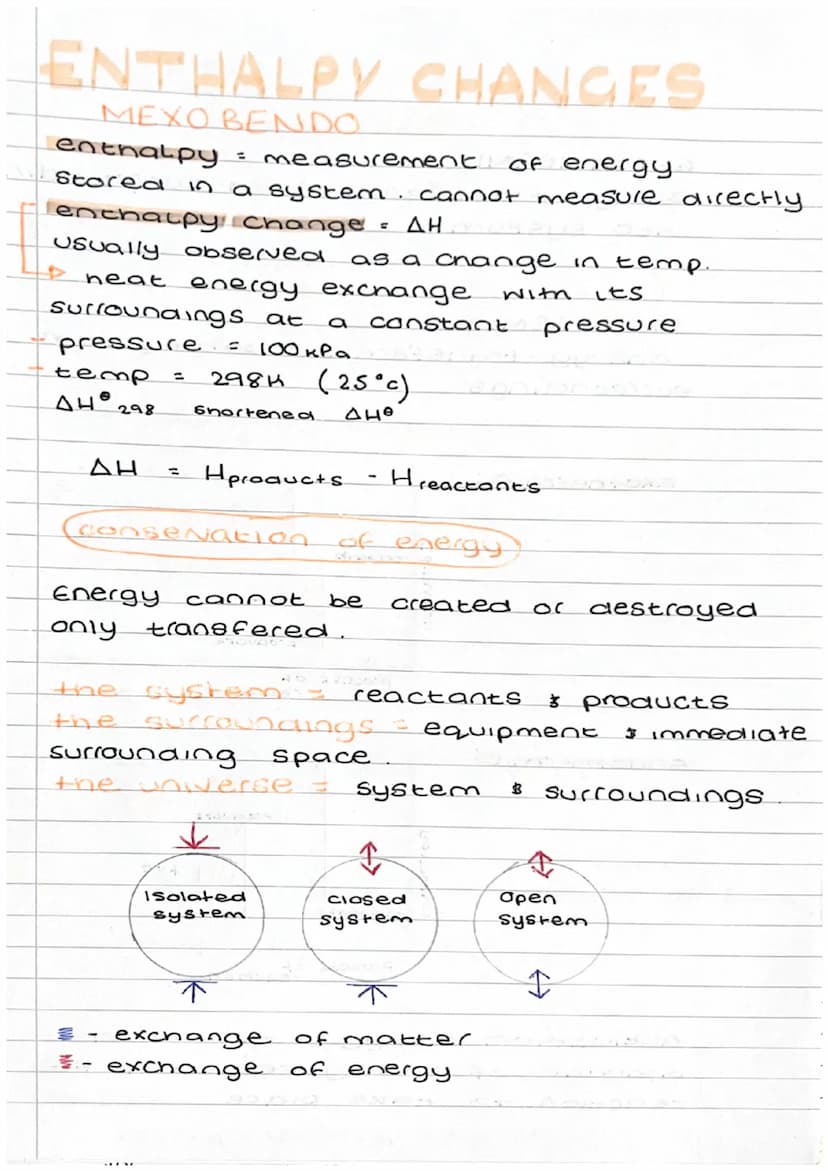 ENTHALPY CHANGES
MEXO BENDO
enthalpy = measurement of energy
stored in a system. cannot measure directly
enthalpy change = ΔH
usually observed as a change in temp.
heat energy exchange with its
surroundings at a constant pressure
- pressure = 100kPa
- temp = 298K (25°c)
ΔH⊖298 shortened ΔH⊖
ΔH = Hproducts - Hreactants
conservation of energy
Energy cannot be created or destroyed
only transfered.
the system = reactants & products
the surroundings = equipment & immediate
surrounding space.
the universe = system & surroundings.
Isolated system
closed system
open system
- exchange of matter
- exchange of energy